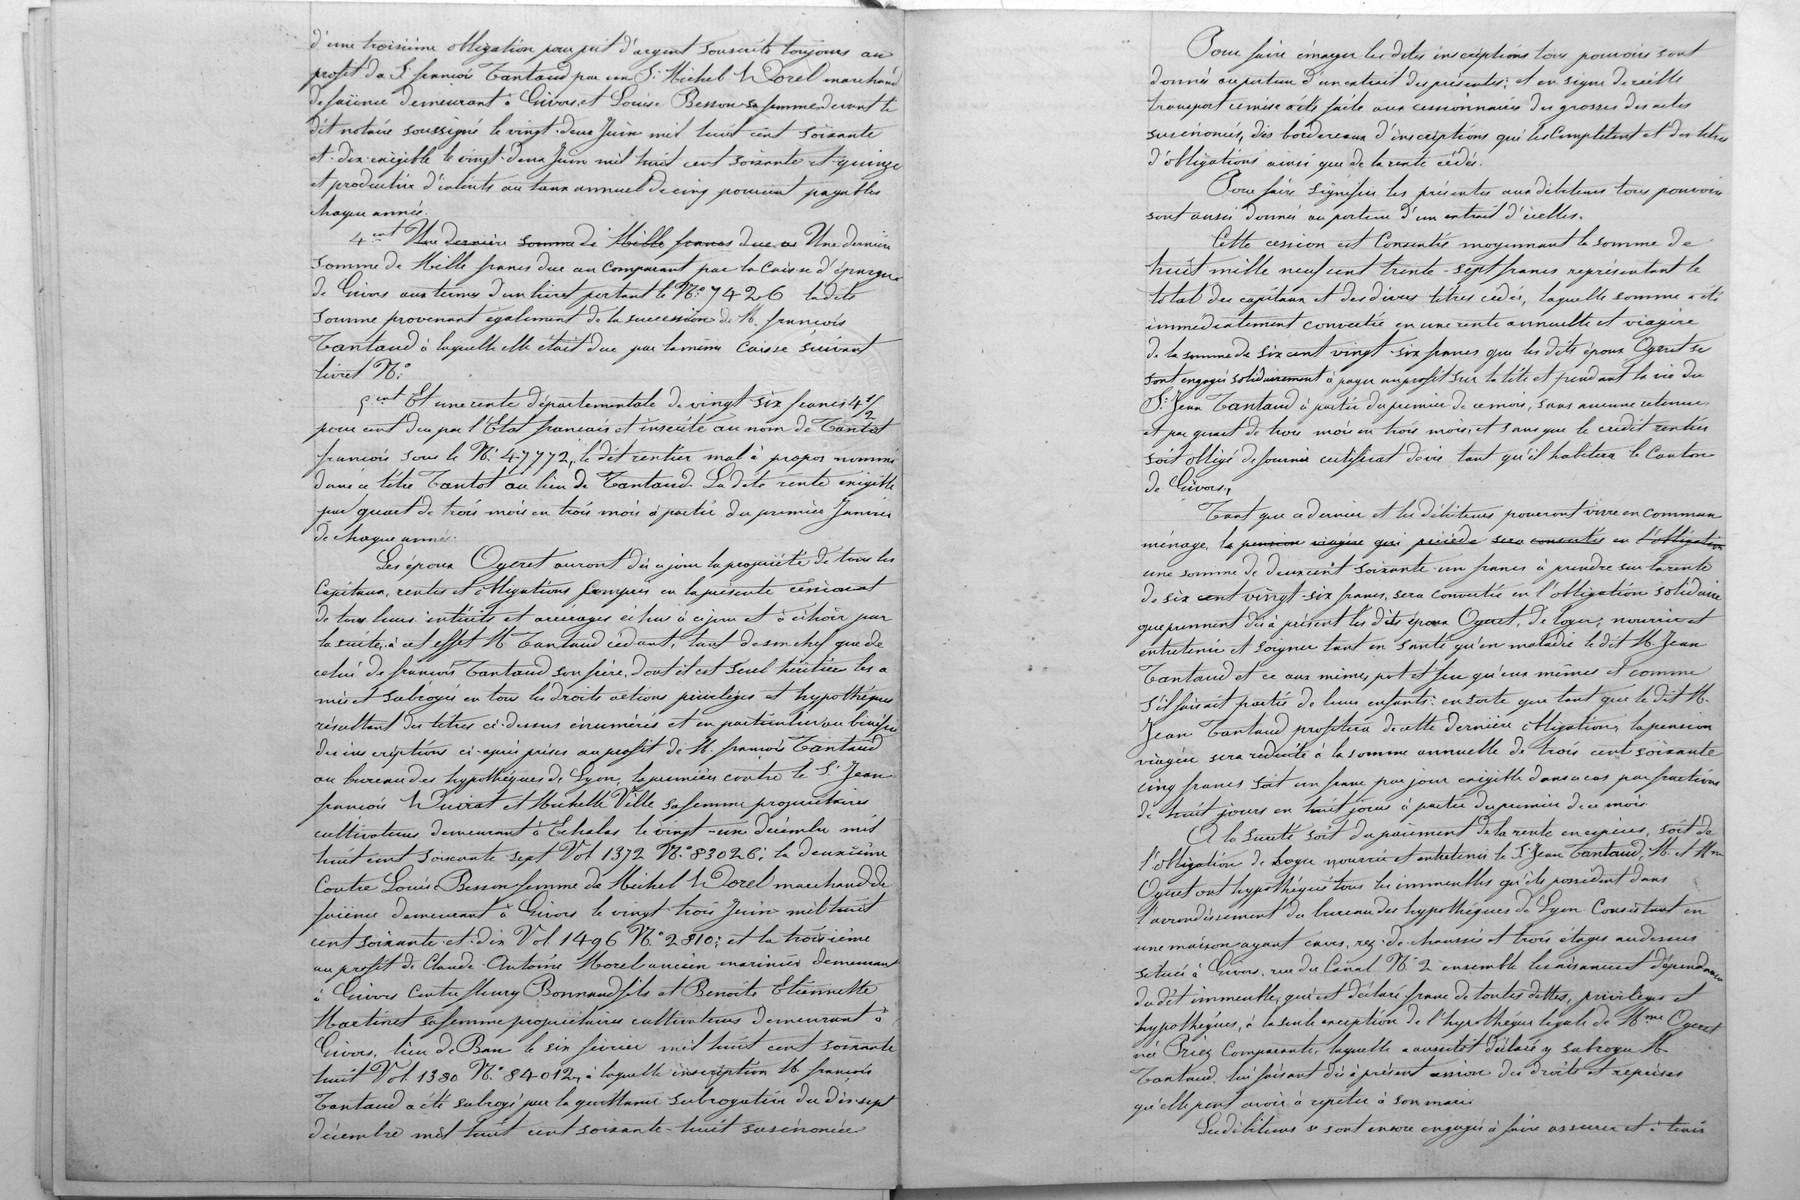 d'une troisième obligation pour prêt d'argent souscrite toujours au
profit du Sr françois Tantaud par un Sr Michel Morel marchand
de faïence demeurant à Givors et Louise Besson sa femme devant le
dit notaire soussigné le vingt-deux Juin mil huit cent soixante
et-dix exigible le vingt-deux Juin mil huit cent soixante et-quinze
et productive d'intérêts au taux annuel de cinq pour cent payables
chaque année.
4ent Une dernière somme de Mille francs due au Une dernière
somme de Mille francs due au Comparant par la Caisse d'épargne
de Givors aux termes d'un livret portant le No 7426 ladite
somme provenant également de la succession de M. françois
Tantaud à laquelle elle était due par la même Caisse suivant
livret No
5ent Et une rente départementale de vingt-six francs 4 1/2
pour cent due par l'Etat français et inscrite au nom de Tantôt
françois sous le No 47772, le dit rentier mal à propos nommé
dans ce titre Tantot au lieu de Tantaud. La dite rente exigible
par quart de trois mois en trois mois à partir du premier Janvier
de chaque année.
Les époux Ogeret auront dès ce jour la propriété de tous les
Capitaux, rentes et obligations Compris en la présente cession et
de tous leurs intérêts et arrérages échus à ce jour et à échoir par
la suite; à cet effet M Tantaud cédant, tant de son chef que de
celui de françois Tantaud son frère, dont il est seul héritier les a
mis et subrogés en tous les droits actions privilèges et hypothèques
résultant des titres ci-dessus énumérés et en particulier au bénéfice
des inscriptions ci-après prises au profit de M. françois Tantaud
au bureau des hypothèques de Lyon, la première contre le Sr Jean
françois et Michelle Ville sa femme propriétaires
cultivateurs demeurant à Echalas le vingt-un décembre mil
huit cent soixante sept Vol 1372 No 83026; la deuxième
Contre Louise Besson femme de Michel Morel marchand de
faïence demeurant à Givors le vingt trois Juin mil huit
cent soixante-et-dix Vol. 1496 No 2810; et la troisième
au profit de Claude Antoine Morel ancien marinier demeurant
à Givors Contre fleury Bonnaud fils et Benoîte Etiennette
Martinet sa femme propriétaires cultivateurs demeurant à
Givors, lieu de Ban le six février mil huit cent soixante
huit Vol. 1380 No 84012, à laquelle inscription M. françois
Tantaud a été subrogé par la quittance subrogative du dix-sept
décembre mil huit cent soixante-huit susénoncée
Pour faire émarger les dites inscriptions tous pouvoirs sont
donnés au porteur d'un extrait des présentes; et en signe de réelle
transport remise a été faite aux cessionnaires des grosses des actes
susénoncés, des bordereaux d'inscriptions qui les Complètent et des titres
d'obligations ainsi que de la rente cédée.
Pour faire signifier les présentes aux débiteurs tous pouvoirs
sont aussi donnés au porteur d'un extrait d'icelles.
Cette cession est Consentie moyennant la somme de
huit mille neuf cent trente-sept francs représentant le
total des capitaux et des divers titres cédés, laquelle somme a été
immédiatement convertie en une rente annuelle et viagère
de la somme de six cent vingt-six francs que les dits époux Ogeret se
sont engagés solidairement à payer au profit sur la tête et pendant la vie du
Sr Jean Tantaud à partir du premier de ce mois, sans aucune retenue
et par quart de trois mois en trois mois, et sans que le crédit rentier
soit obligé de fournir certificat de vie tant qu'il habitera le Canton
de Givors,
Tant que ce dernier et les débiteurs pourront vivre en commun
ménage, la pension viagère qui précède sera convertie en l'obligation
une somme de deux cent soixante-un francs à prendre sur la rente
de six cent vingt-six francs, sera convertie en l'obligation solidaire
que prennent dès à présent les dits époux Ogeret, de loger, nourrir et
entretenir et soigner tant en santé qu'en maladie le dit M. Jean
Tantaud et ce aux mêmes pot et feu qu'eux mêmes et comme
s'il faisait partie de leurs enfants; en sorte que tant que le dit M.
Jean Tantaud profitera de cette dernière obligation, la pension
viagère sera réduite à la somme annuelle de trois cent soixante
cinq francs soit un franc par jour exigible dans ce cas par fractions
de huit jours en huit jours à partir du premier de ce mois
A la sureté soit du paiement de la rente en espèces, soit de
l'obligation de Loger nourrir et entretenir le Sr Jean Tantaud, M. et Mme
Ogeret ont hypothéqué tous les immeubles qu'ils possèdent dans
l'arrondissement du bureau des hypothèques de Lyon Consistant en
une maison ayant caves, rez-de-chaussée et trois étages au dessus
située à Givors, rue du Canal No 2 ensemble les aisances et dépendances
du dit immeuble, qui est déclaré franc de toutes dettes, privilèges et
hypothèques, à la seule exception de l'hypothèque légale de Mme Ogeret
née Priez Comparante, laquelle a aussitôt déclaré y subroger M.
Tantaud, lui faisant dès à présent cession des droits et reprises
qu'elle peut avoir à répéter à son mari.
Les débiteurs se sont encore engagés à faire assurer et à tenir